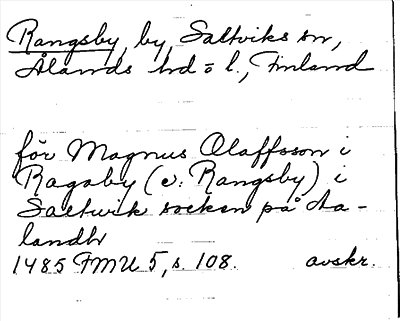 Rangsby, by, Saltviks sn,
Ålands hd o l., Finland
för Magnus Olaffsson i
Ragaby (v: Rangsby) i
Saltwik socken på Aa-
landh
1485 FMU 5, s. 108. avskr.